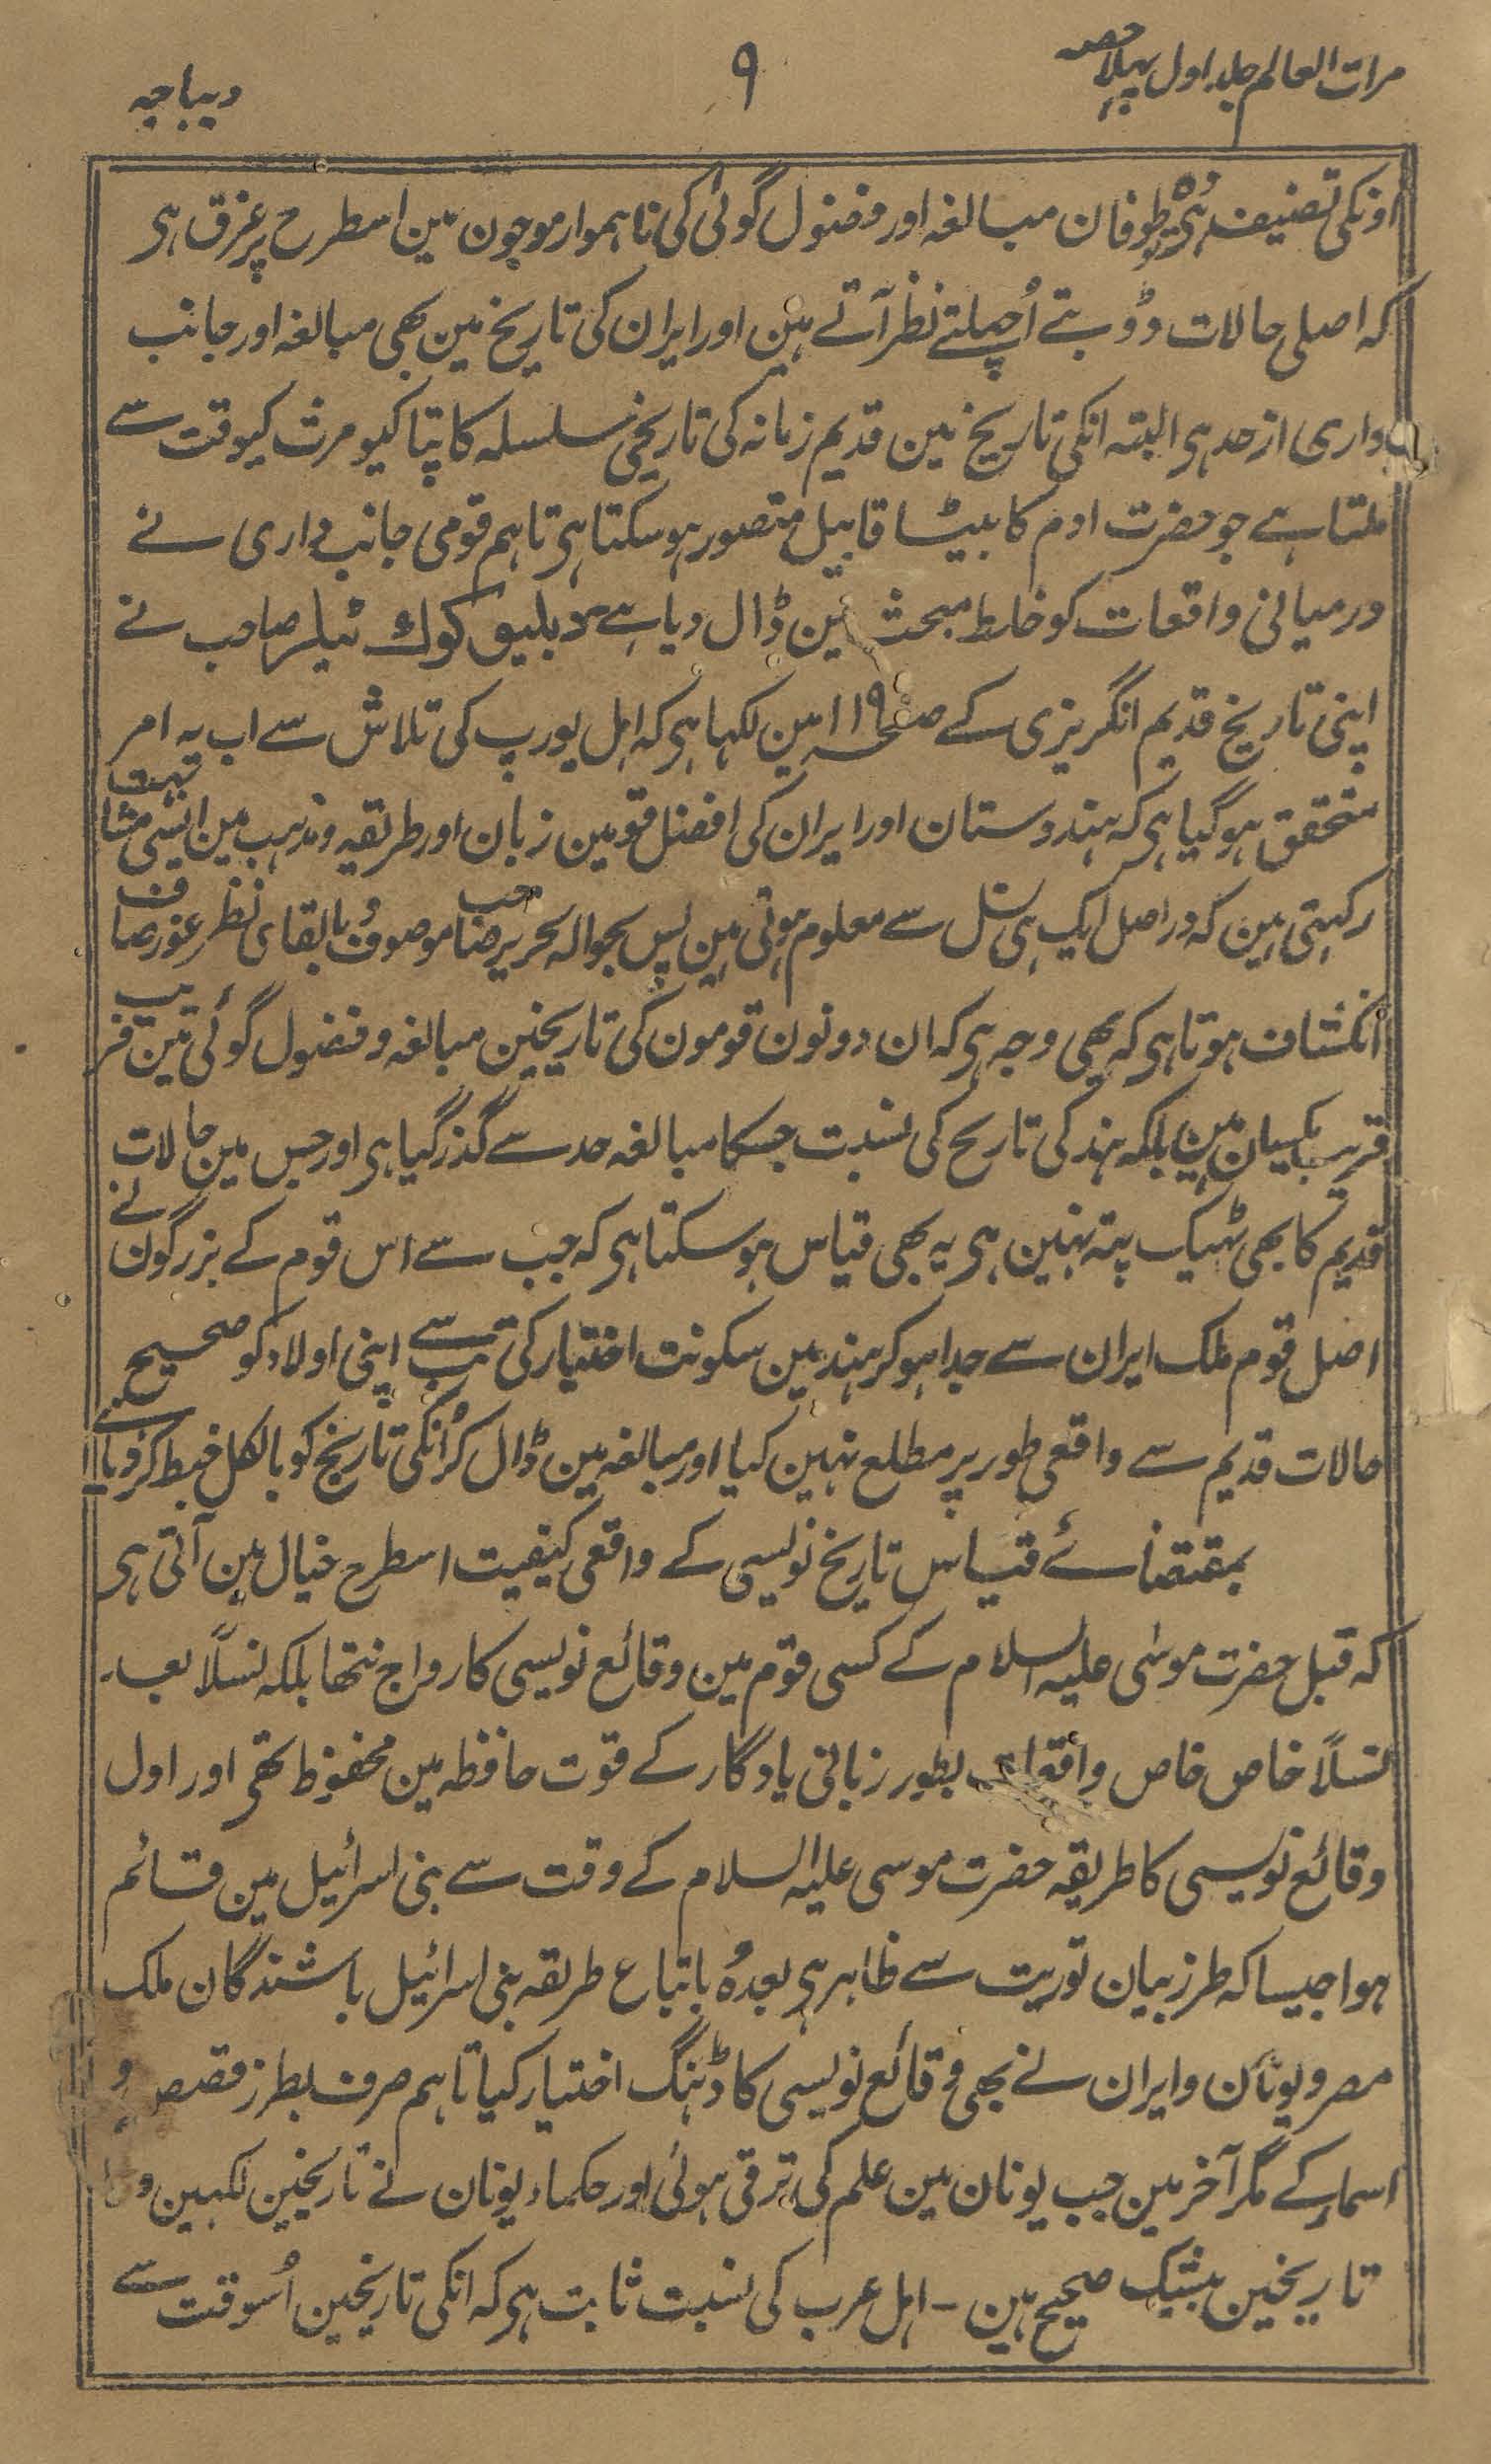 مرات العالم جلد اول پہلا حصہ
۹
دیباچہ
اونکی تصنیف طوفان مبالغہ اور فضول گوئی کی ناہموار موجون مین اسطرح پر غرق ہی
کہ اصلی حالات ڈوبتے اُچھلتے نظر آتے ہین اور ایران کی تاریخ مین بھی مبالغہ اور جانب
داری از حد ہی البتہ انکی تاریخ مین قدیم زمانہ کی تاریخی سلسلہ کا پتا کیومرث کیوقت سے
ملتا ہے جو حضرت ادم کا بیٹا قابیل متصور ہو سکتا ہی تاہم قومی جانب داری نے
درمیانی واقعات کو خلط مبحث مین ڈال دیا ہے دبلیو کوك ٹیلر صاحب نے
اپنی تاریخ قدیم انگریزی کے صفحہ ۱۱۹ مین لکہا ہی کہ اہل یورپ کی تلاش سے اب یہ امر
متحقق ہوگیا ہی کہ ہندوستان اور ایران کی افضل قومین زبان اور طریقہ و مذہب مین ایسی مشابہت
رکہتی ہین کہ در اصل ایک ہی نسل سے معلوم ہوتی ہین پس بحوالہ تحریر صاحب موصوف بالقای نظر غور صاف
انکشاف ہوتا ہی کہ یھی وجہ ہی کہ ان دونون قومون کی تاریخین مبالغہ و فضول گوئی مین قریب
قریب یکسان ہین بلکہ ہند کی تاریخ کی نسبت جسکا مبالغہ حد سے گذر گیا ہی اور جس مین حالات
قدیم کا بھی ٹہیک پتہ نہین ہی یہ بھی قیاس ہو سکتا ہی کہ جب سے اس قوم کے بزرگون نے
اصل قوم ملک ایران سے جدا ہو کر ہند مین سکونت اختیار کی تب سے اپنی اولاد کو صحیح
حالات قدیم سے واقعی طور پر مطلع نہین کیا اور مبالغہ مین ڈال کر اُنکی تاریخ کو بالکل خبط کر دیا ہے
بمقتضائے قیاس تاریخ نویسی کے واقعی کیفیت اسطرح خیال مین آتی ہی
کہ قبل حضرت موسٰی علیہ السلام کے کسی قوم مین وقائع نویسی کا رواج نتھا بلکہ نسلًا بعد
نسلًا خاص خاص واقعات بطور زبانی یادگار کے قوت حافظہ مین محفوظ تھی اور اول
وقائع نویسی کا طریقہ حضرت موسی علیہ السلام کے وقت سے بنی اسرائیل مین قائم
ہوا جیسا کہ طرز بیان توریت سے ظاہر ہی بعدہٗ باتباع طریقہ بنی اسرائیل باشندگان ملک
مصر و یونان و ایران نے بھی وقائع نویسی کا ڈہنگ اختیار کیا تاہم صرف بطرز قصص و
اسمار کے مگر آخر مین جب یونان مین علم کی ترقی ہوئی اور حکماء یونان نے تاریخین لکہین
تاریخین بیشک صحیح ہین - اہل عرب کی نسبت ثابت ہی کہ انکی تاریخین اُسوقت سے